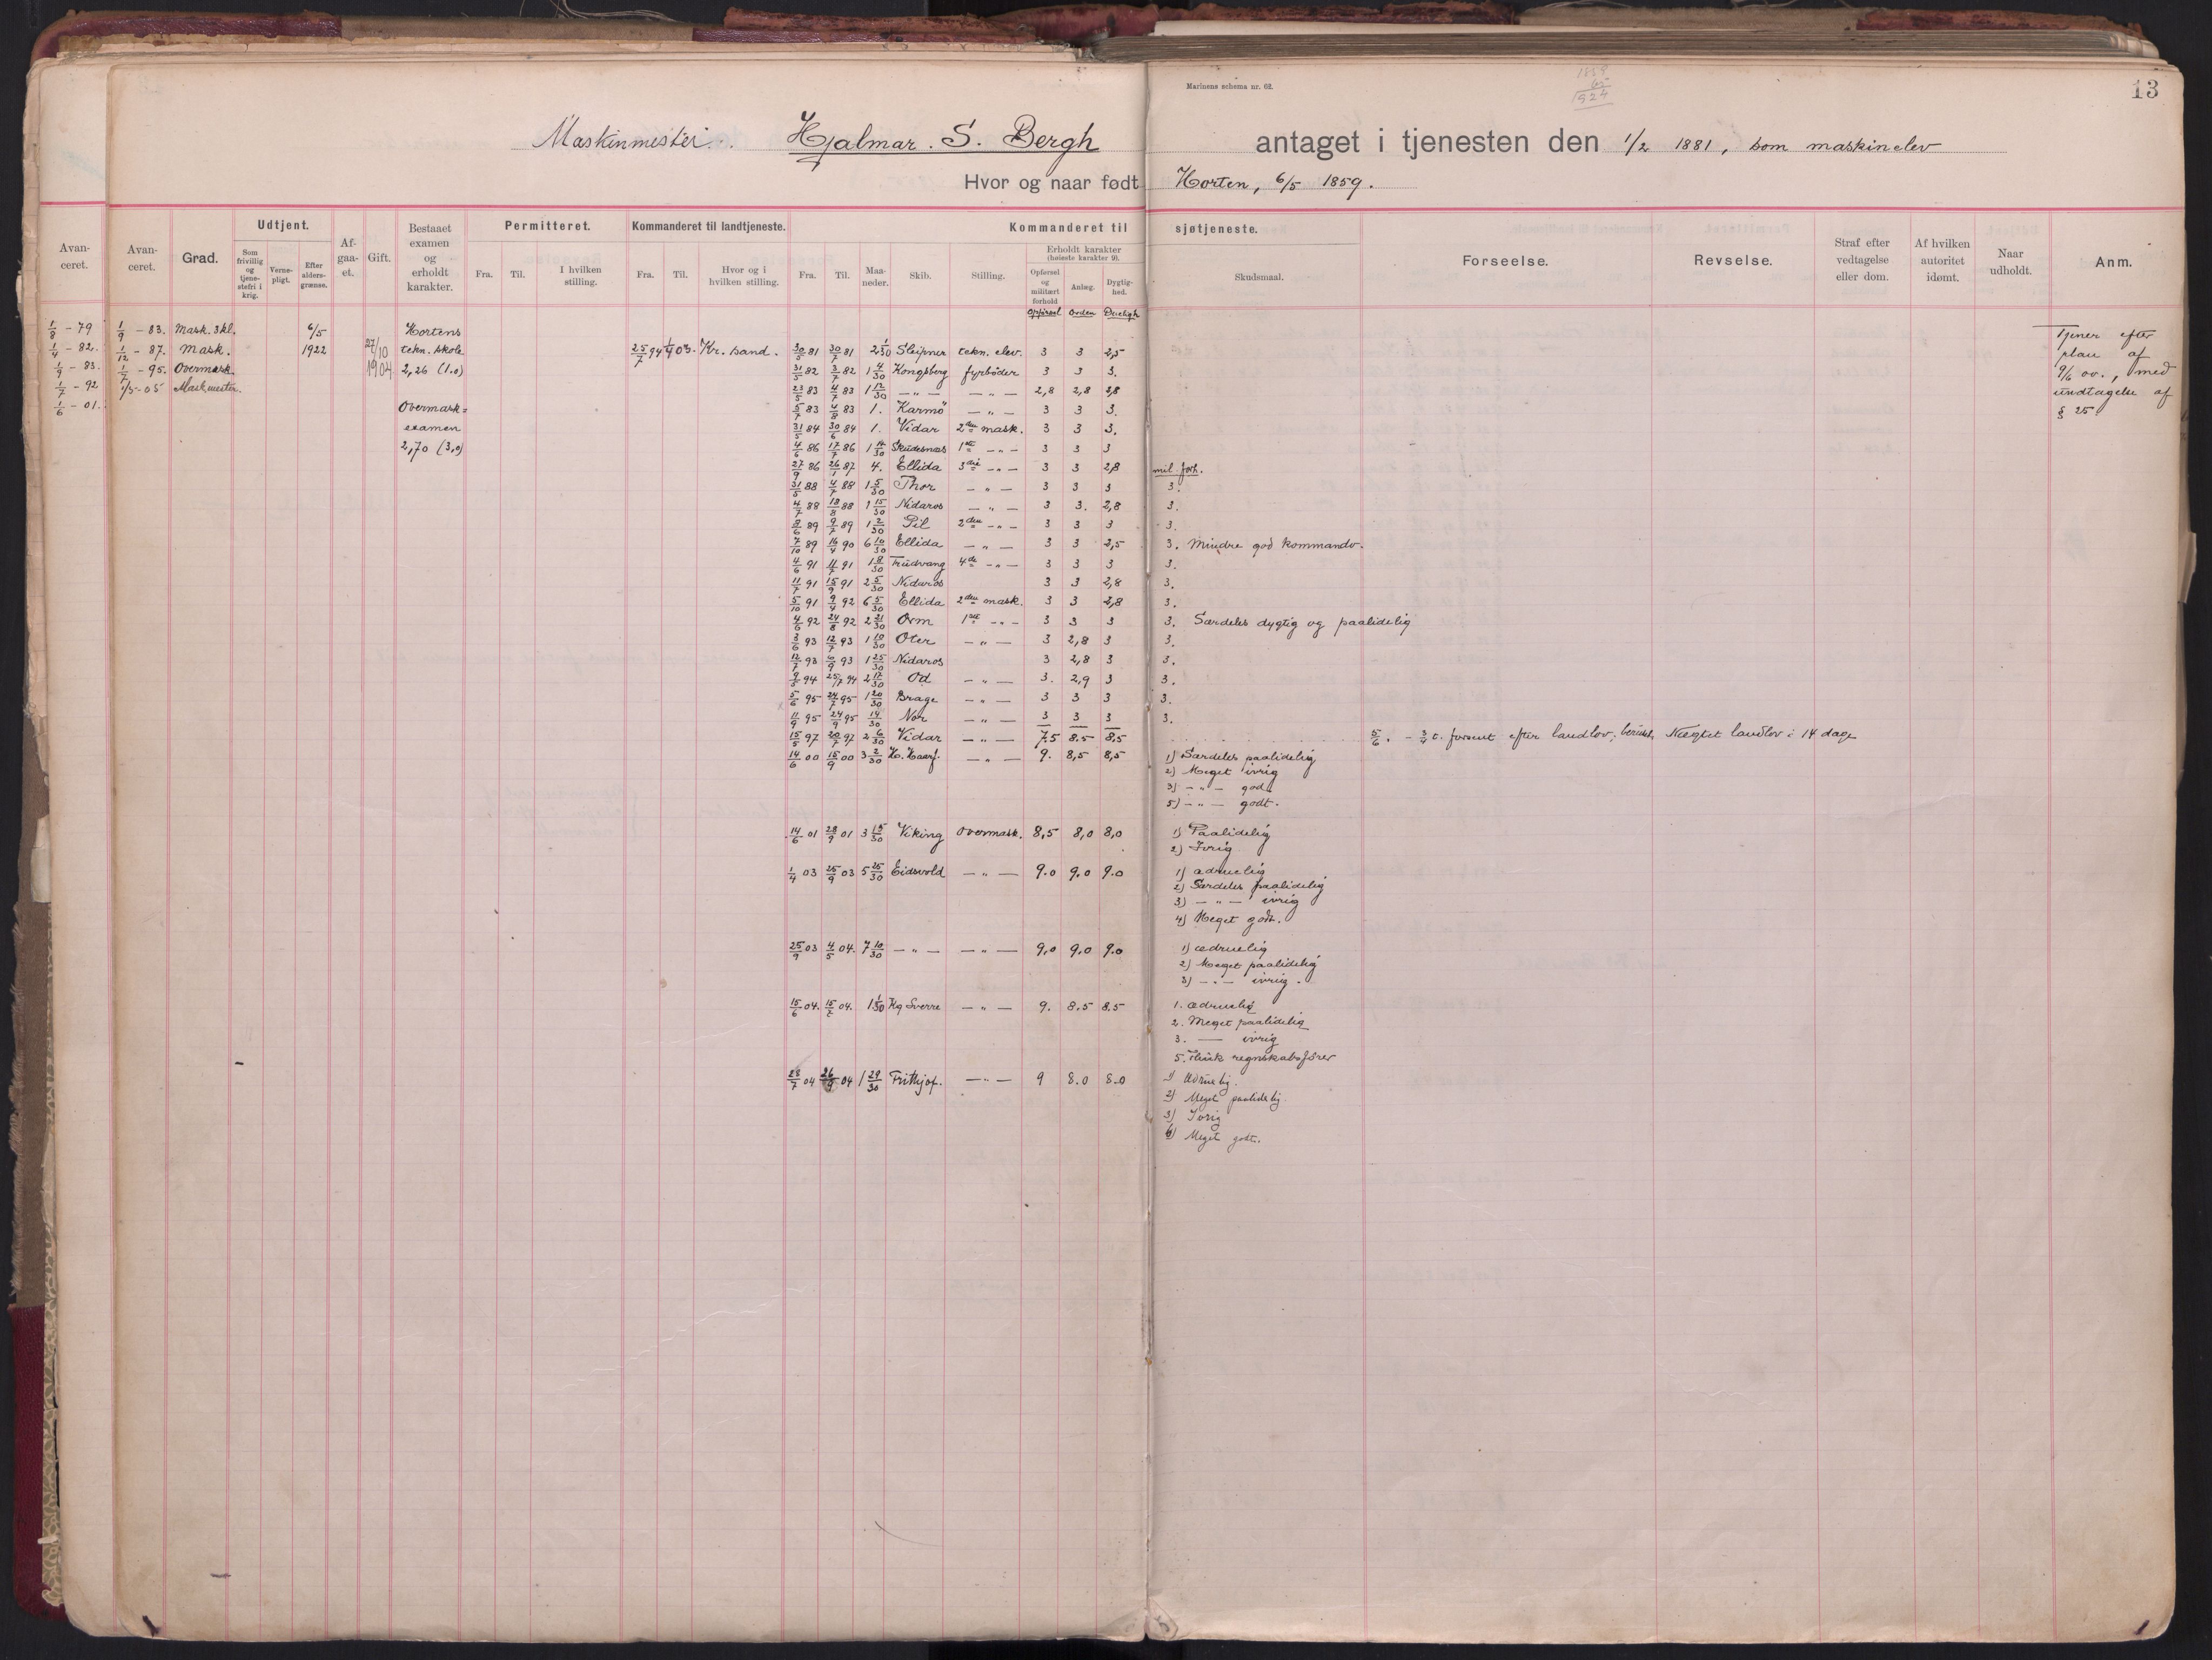 Marinens schema nr. 62.
1859
65
1924
13
Maskinmester. Hjalmar. S. Bergh antaget i tjenesten den 1/2 1881, som maskinelev
Hvor og naar født Horten, 6/5 1859.
Avanceret.
Avanceret.
Grad.
Udtjent.
Som frivillig og tjenestefri i krig.
Vernepligt.
Efter aldersgrænse.
Afgaaet.
Gift.
Bestaaet examen og erholdt karakter.
Permitteret.
Fra. Til. I hvilken stilling.
Kommanderet til landtjeneste.
Fra. Til. Hvor og i hvilken stilling.
Kommanderet til sjøtjeneste.
Fra. Til. Maaneder. Skib. Stilling.
Erholdt karakter (høieste karakter 9).
Opførsel og militært forhold Anlæg. Dygtighed.
Opførsel Orden Dueligh
Skudsmaal.
Forseelse.
Revselse.
Straf efter vedtagelse eller dom.
Af hvilken autoritet idømt.
Naar udholdt.
Anm.
1/8 - 79
1/4 - 82.
1/9 - 83.
1/7 - 92
1/6 - 01.
1/9 - 83. Mask. 3kl.
1/12 - 87. Mask.
1/7 - 95. Overmask.
1/5 - 05 Maskmester.
6/5
1922
27/10
1904
Hortens
tekn. skole
2,26 (1.0)
Overmask=
examen
2,70 (3,0)
25/7 94 1/9 03. Kr. sand.
30/5 81 30/7 81 2 1/30 Sleipner tekn. elev. 3 3 2,5
31/5 82 3/7 82 1 4/30 Kongsberg fyrbøder 3 3 3.
23/5 83 4/7 83 1 12/30 — " — — " — 2,8 2,8 2,8
5/7 83 4/8 83 1. Karmø — " — 3 3 3.
31/5 84 30/6 84 1. Vidar 2den mask. 3 3 3.
4/6 86 17/7 86 1 14/30 Skudesnæs 1ste — " — 3 3 3
27/9 86 26/1 87 4. Ellida 3die — " — 3 3 2,8 mil. forh.
31/5 88 4/7 88 1 5/30 Thor — " — 3 3 3 3.
4/7 88 18/8 88 1 15/30 Nidaros — " — 3 3. 2,8 3.
8/6 89 9/7 89 1 2/30 Pil 2den — " — 3 3 3 3.
7/10 89 16/4 90 6 10/30 Ellida — " — 3 3 2,5 3. Mindre god kommando.
4/6 91 11/7 91 1 8/30 Trudvang 4de — " — 3 3 3 3.
11/7 91 15/9 91 2 5/30 Nidaros 3 3 2,8 3.
5/10 91 9/4 92 6 5/30 Ellida 2den mask. 3 3 2,8 3.
4/6 92 24/8 92 2 21/30 Orm 1ste — " — 3 3 3 3. Særdeles dygtig og paalidelig
3/6 93 12/7 93 1 10/30 Oter — " — 3 2,8 3 3.
12/7 93 6/9 93 1 25/30 Nidaros 3 2,8 3 3.
9/5 94 25/7 94 2 17/30 Od — " — 3. 2,9 3 3.
5/6 95 24/7 95 1 20/30 Brage — " — 3 3 3 3.
11/9 95 24/9 95 14/30 Nor — " — 3 3 3 3.
15/5 97 20/7 97 2 6/30 Vidar — " — 7.5 8.5 8.5 5/6. - 3/4 t. forsent efter landlov; beruset, Nægtet landlov i 14 dage
14/6 00 15/9 00 3 2/30 H. Haarf. — " — 9. 8,5 8,5 1) Særdeles paalidelig
2) Meget ivrig
3) — " — god
5) — " — godt.
14/6 01 28/9 01 3 15/30 Viking Overmask. 8,5 8,0 8,0 1) Paalidelig
2) Ivrig
1/4 03 25/9 03 5 25/30 Eidsvold — " — 9.0 9.0 9.0 1) ædruelig
2) Særdeles paalidelig
3) — " — ivrig
4) Meget godt.
25/9 03 4/5 04. 7 10/30 — " — — " — 9,0 9,0 9.0 1) ædruelig
2) Meget paalidelig
3) — " — ivrig.
15/6 04. 15/7 04. 1 1/30 Kg Sverre — " — 9. 8.5 8.5 1. ædruelig
2. Meget paalidelig
3. — ivrig
5. Flink regnskabsfører
28/7 04 26/9 04 1 29/30 Frithjof. — " — 9 8.0 8.0 1) Ædruelig.
2) Meget paalidelig.
3) Ivrig
6) Meget godt.
Tjener efter
plan af
9/6 00., med
undtagelse af
§ 25